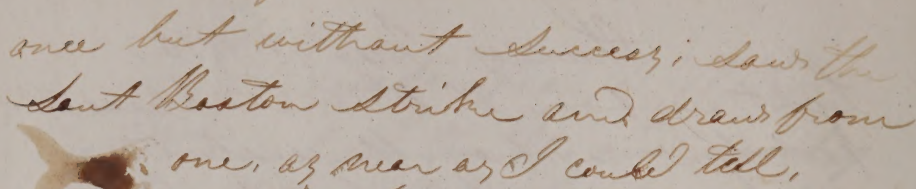 once but without success; saw the
sout Boston strike and draws from
one, as near as I could tell.